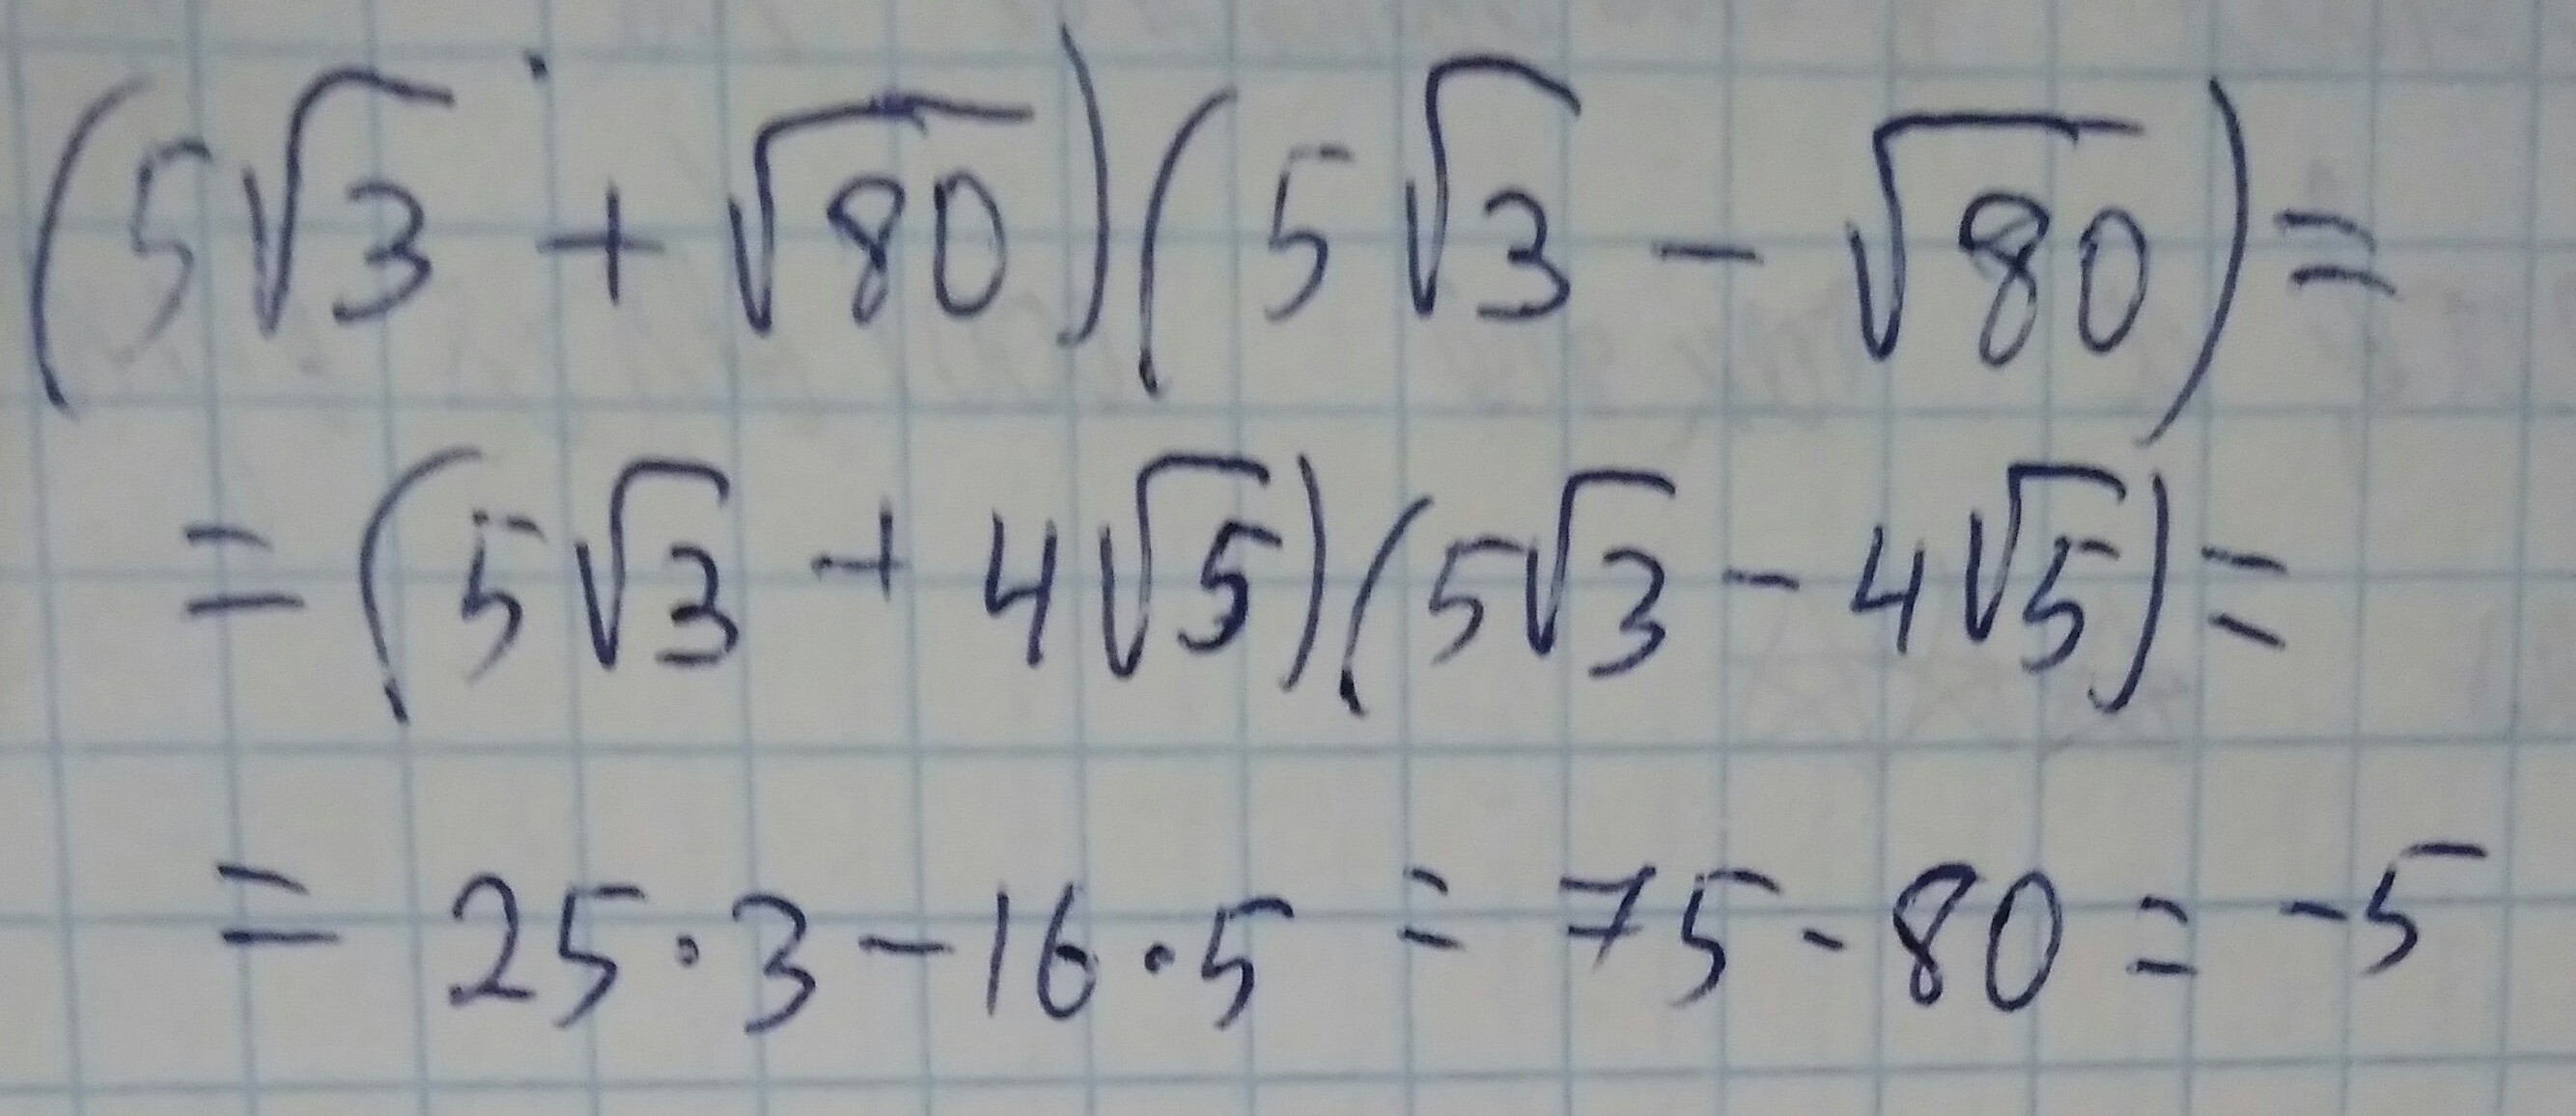 (5√3 + √80)(5√3 - √80) =
= (5√3 + 4√5)(5√3 - 4√5) =
= 25·3 - 16·5 = 75 - 80 = -5